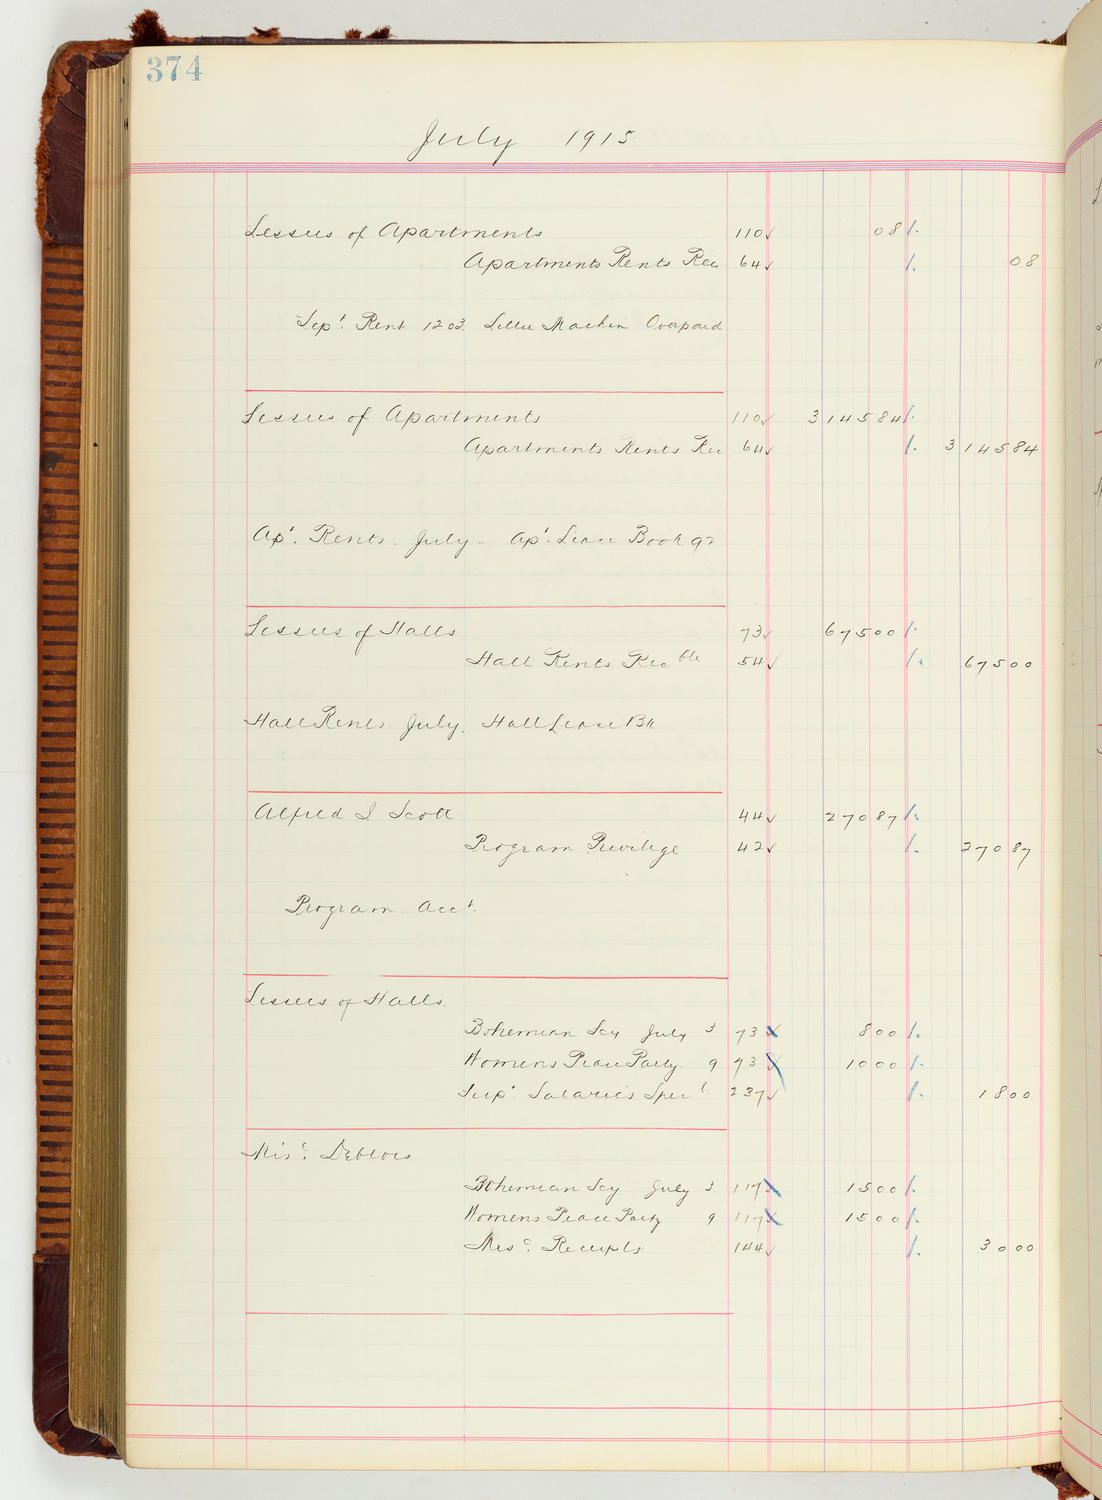 374
July 1915
Lessees of Apartments 110 08
Apartments Rents Rec 64 08
Sept. Rent 1203. Lillie Machin Overpaid
Lessees of Apartments 110 3 145 84
Apartments Rents Rec 64 3 145 84
Apt. Rents. July - Apt. Lease Book 92
Lessees of Halls 73 675 00
Hall Rents Recble 54 675 00
Hall Rents July. Hall Lease Bk
Alfred S. Scott 44 270 87
Program Privilege 42 270 87
Program Acct.
Lessees of Halls.
Bohemian Scy July 3 73 8 00
Womens Peace Party 9 73 10 00
Supt. Salaries Specl. 237 18 00
Misc. Debtors
Bohemian Scy. July 3 117 15 00
Womens Peace Party 9 117 15 00
Misc. Receipts 144 30 00